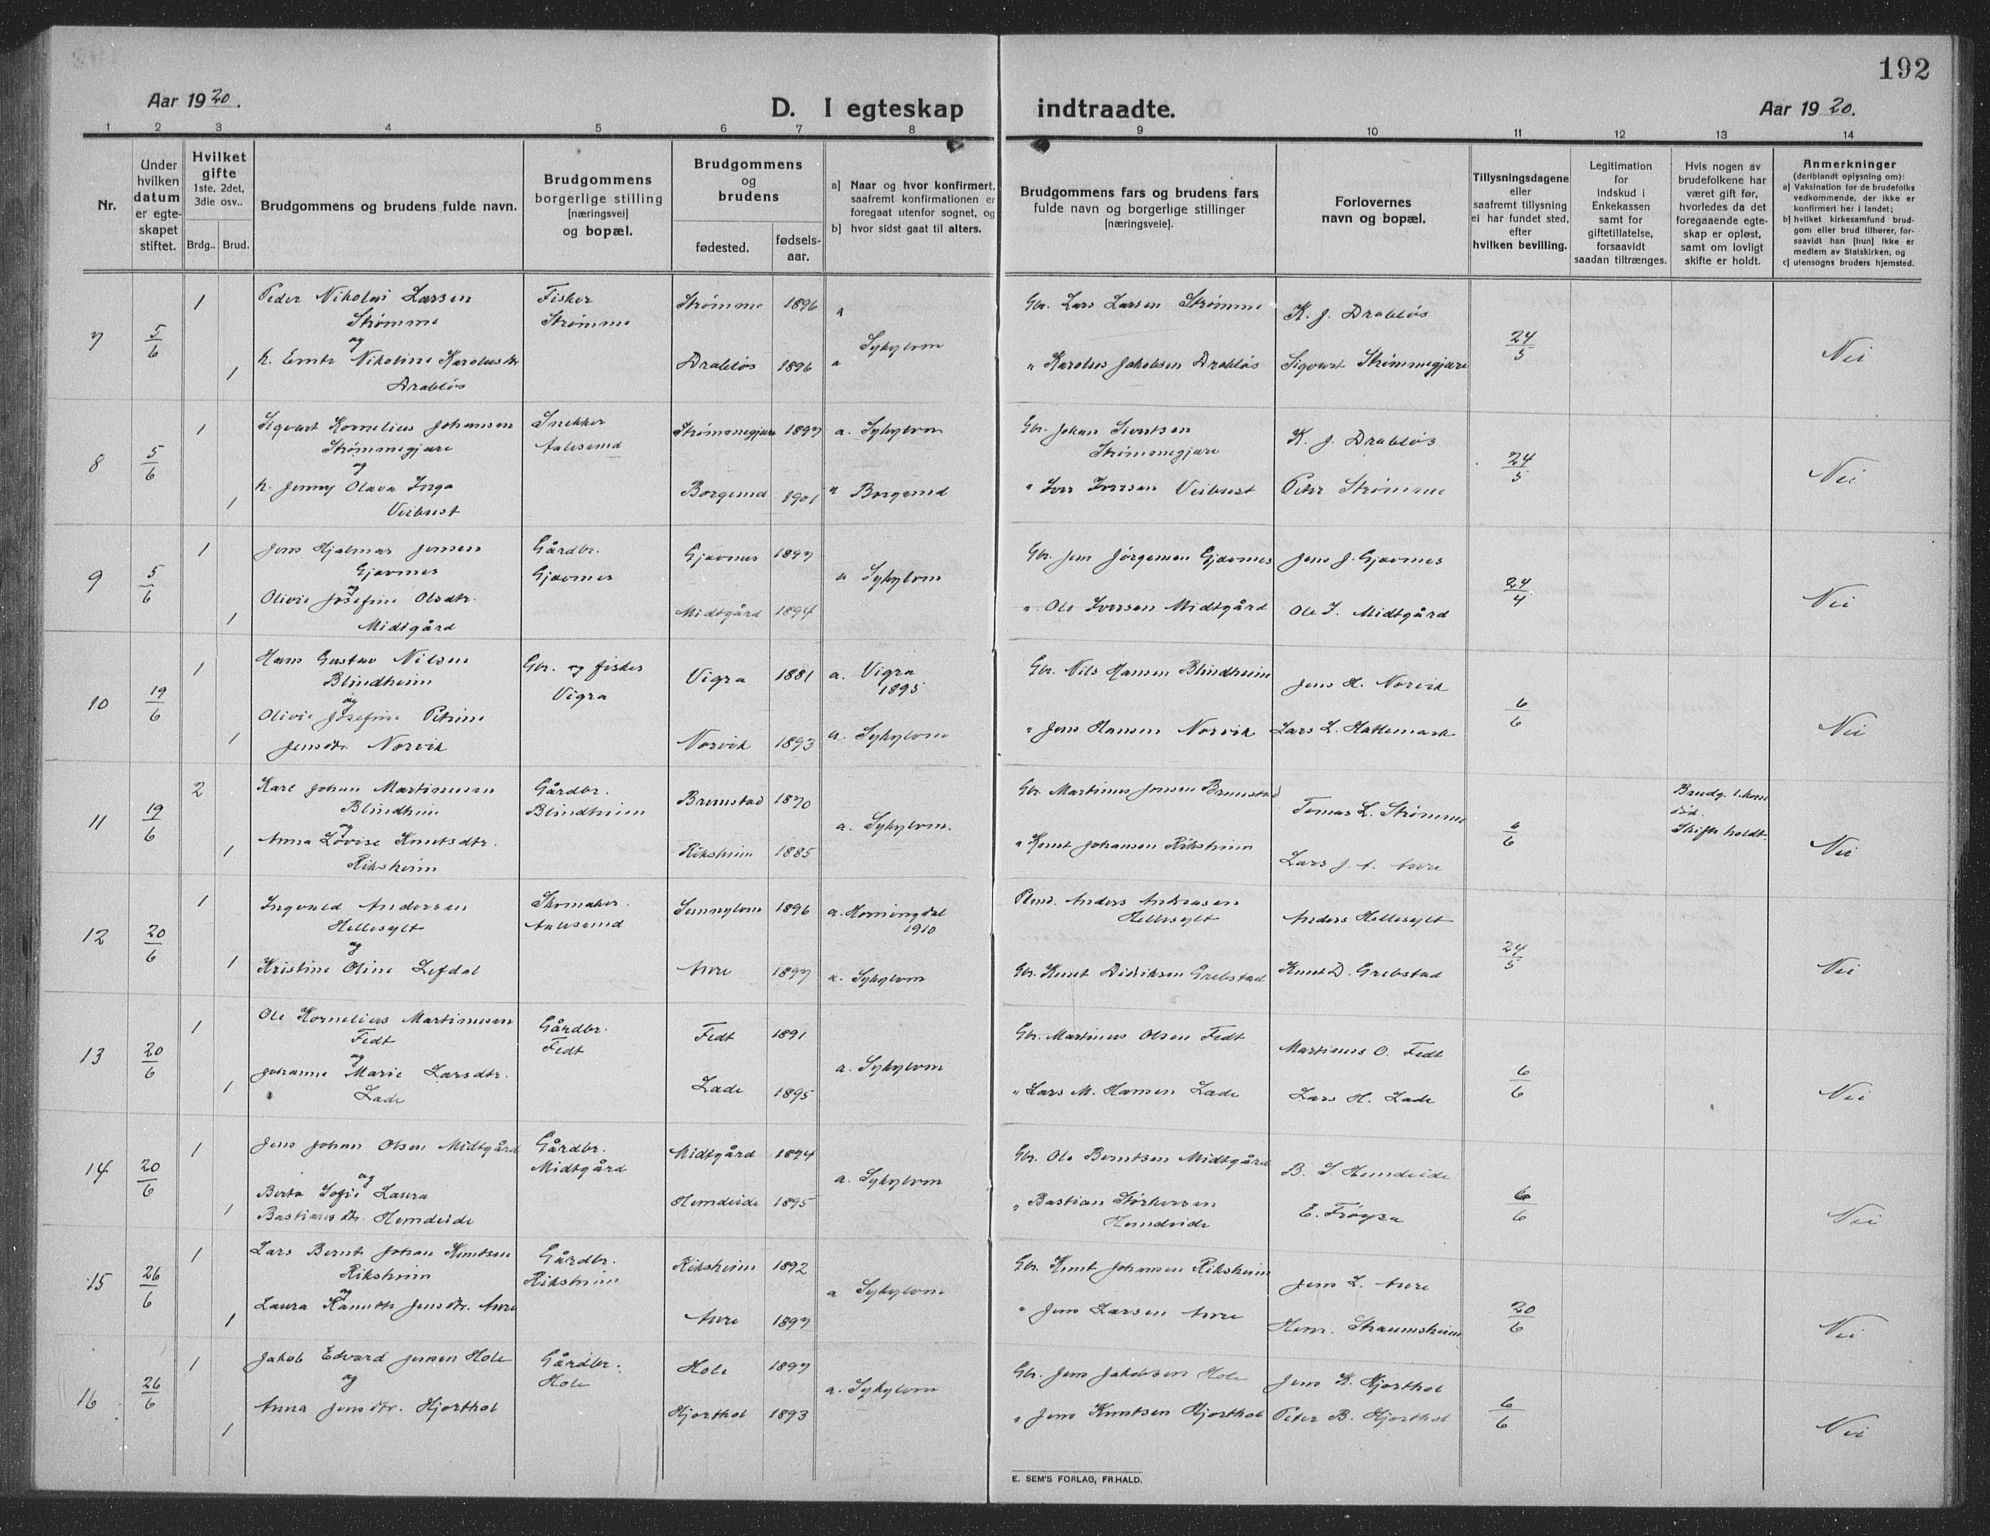 192
Aar 1920.
D. I egteskap indtraadte.
Aar 1920.
1 2 3 4 5 6 7 8 9 10 11 12 13 14
Nr.
Under hvilken datum er egteskapet stiftet.
Hvilket gifte 1ste, 2det, 3die osv..
Brdg.. Brud.
Brudgommens og brudens fulde navn.
Brudgommens borgerlige stilling [næringsvei] og bopæl.
Brudgommens og brudens
fødested. fødselsaar.
a) Naar og hvor konfirmert, saafremt konfirmationen er foregaat utenfor sognet, og
b) hvor sidst gaat til alters.
Brudgommens fars og brudens fars fulde navn og borgerlige stillinger [næringsveie].
Forlovernes navn og bopæl.
Tillysningsdagene eller saafremt tillysning ei har fundet sted, efter hvilken bevilling.
Legitimation for indskud i Enkekassen samt for giftetillatelse, forsaavidt saadan tiltrænges.
Hvis nogen av brudefolkene har været gift før, hvorledes da det foregaaende egteskap er opløst, samt om lovligt skifte er holdt.
Anmerkninger (deriblandt oplysning om):
a) Vaksination for de brudefolks vedkommende, der ikke er konfirmert her i landet;
b) hvilket kirkesamfund brudgom eller brud tilhører, forsaavidt han [hun] ikke er medlem av Statskirken, og
c) utensogns bruders hjemsted.
7 5/6 1 Peder Nikolai Larsen Strømme Fisker Strømme Strømme 1896 a Gbr. Lars Larsen Strømme K. J. Drabløs 24/5 Nei
og
1 Nikoline Karolusdtr Drabløs Drabløs 1896 a Sykylven " Karolus Jakobsen Drabløs Sigvart Strømmegjære
8 5/6 1 Sigvart Kornelius Johansen Strømmegjære Snekker Aalesund Strømmegjære 1897 a. Sykylven Gbr. Johan Sivertsen Strømmegjære K. J. Drabløs 24/5 Nei
og
1 Jenny Olava Inga Veibust Borgund 1901 " Borgund " Iver Iversen Veibust Peter Strømme
9 5/6 1 Jens Hjalmar Jensen Gjævenes Gårdbr. Gjævenes Gjævnes 1897 a Sykylven Gbr. Jens Jørgensen Gjævenes Jens J. Gjævenes 24/4 Nei
og
1 Olivie Josefine Olsdtr. Midtgård Midtgård 1894 " Ole Iversen Midtgård Ole I. Midtgård
10 19/6 1 Hans Gustav Nilsen Blindheim Gbr. og fisker Vigra Vigra 1881 a. Vigra 1895 Gbr. Nils Hansen Blindheim Jens H. Norvik 6/6 Nei
og
1 Olivie Josefine Petrine Jensdtr. Norvik Norvik 1893 a. Sykylven " Jens Hansen Norvik Lars L. Hattemark
11 19/6 2 Karl Johan Martinusen Blindheim Gårdbr. Blindheim Brunstad 1870 a. Sykylven. Gbr. Martinus Jonsen Brunstad Tomas L. Strømme 6/6 Brudg. 1. kone død. Skifte holdt. Nei
og
1 Anna Lovise Knutsdtr. Riksheim Riksheim 1885 " Knut Johansen Riksheim Lars J. A. Aure
12 20/6 1 Ingvald Andersen Hellesylt Skomaker. Aalesund Sunnylven 1896 a. Horningdal 1910 Anders Andreasen Hellesylt Anders Hellesylt 24/5 Nei
og
1 Kristine Oline Lefdal Aure 1897 a. Sykylven Gbr. Knut Didriksen Grebstad Knut D. Grebstad
13 20/6 1 Ole Kornelius Martinusen Fedt Gårdbr. Fedt Fedt 1891 a. Sykylven Gbr. Martinus Olsen Fedt Martinus O. Fedt 6/6 Nei
og
1 Johanne Marie Larsdtr. Lade Lade 1895 " Lars M. Hansen Lade Lars H. Lade
14 20/6 1 Jens Johan Olsen Midtgård Gårdbr. Midtgård Midtgård 1894 a. Sykylven Gbr. Ole Berntsen Midtgård B. S. Hundeide 6/6 Nei
og
1 Berta Sofie Laura Bastiansdtr. Hundeide Hundeide 1895 " Bastian Størkersen Hundeide E. Frøysa
15 26/6 1 Lars Bernt Johan Knutsen Riksheim Gårdbr. Riksheim Riksheim 1892 a Sykylven Gbr. Knut Johansen Riksheim Jens L. Aure 20/6 Nei
og
1 Laura Jensdtr. Aure Aure 1897 " Jens Larsen Aure Straumsheim
16 26/6 1 Jakob Edvard Jensen Hole Gårdbr. Hole Hole 1897 a. Sykylven Gbr. Jens Jakobsen Hole Jens K. Hjorthol 6/6 Nei
og
1 Anna Jensdtr. Hjorthol Hjorthol 1893 " Jens Knutsen Hjorthol Peter B. Hjorthol
E. SEM'S FORLAG, FR.HALD.